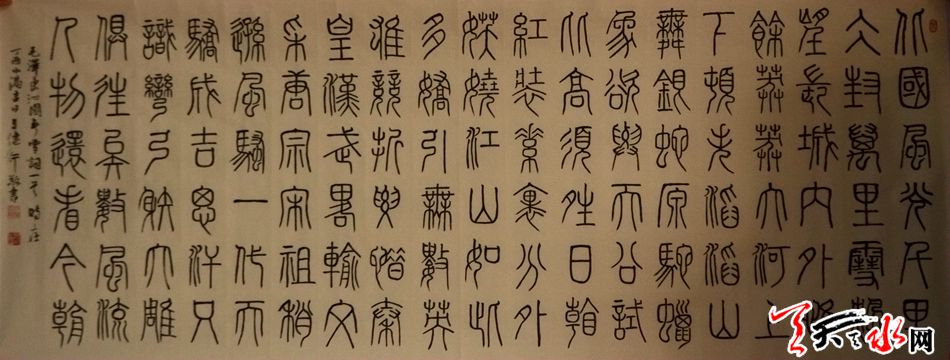 北國風光千里
冰封萬里雪飄
望長城內外惟
餘莽莽大河上
下頓失滔滔山
舞銀蛇原馳蠟
象欲與天公試
比高須晴日看
紅裝素裹分外
妖嬈江山如此
多嬌引無數英
雄競折腰惜秦
皇漢武略輸文
采唐宗宋祖稍
遜風騷一代天
驕成吉思汗只
識彎弓射大雕
俱往矣數風流
人物還看今朝
毛澤東沁園春雪詞一首時在
丁酉小滿
天天天水网